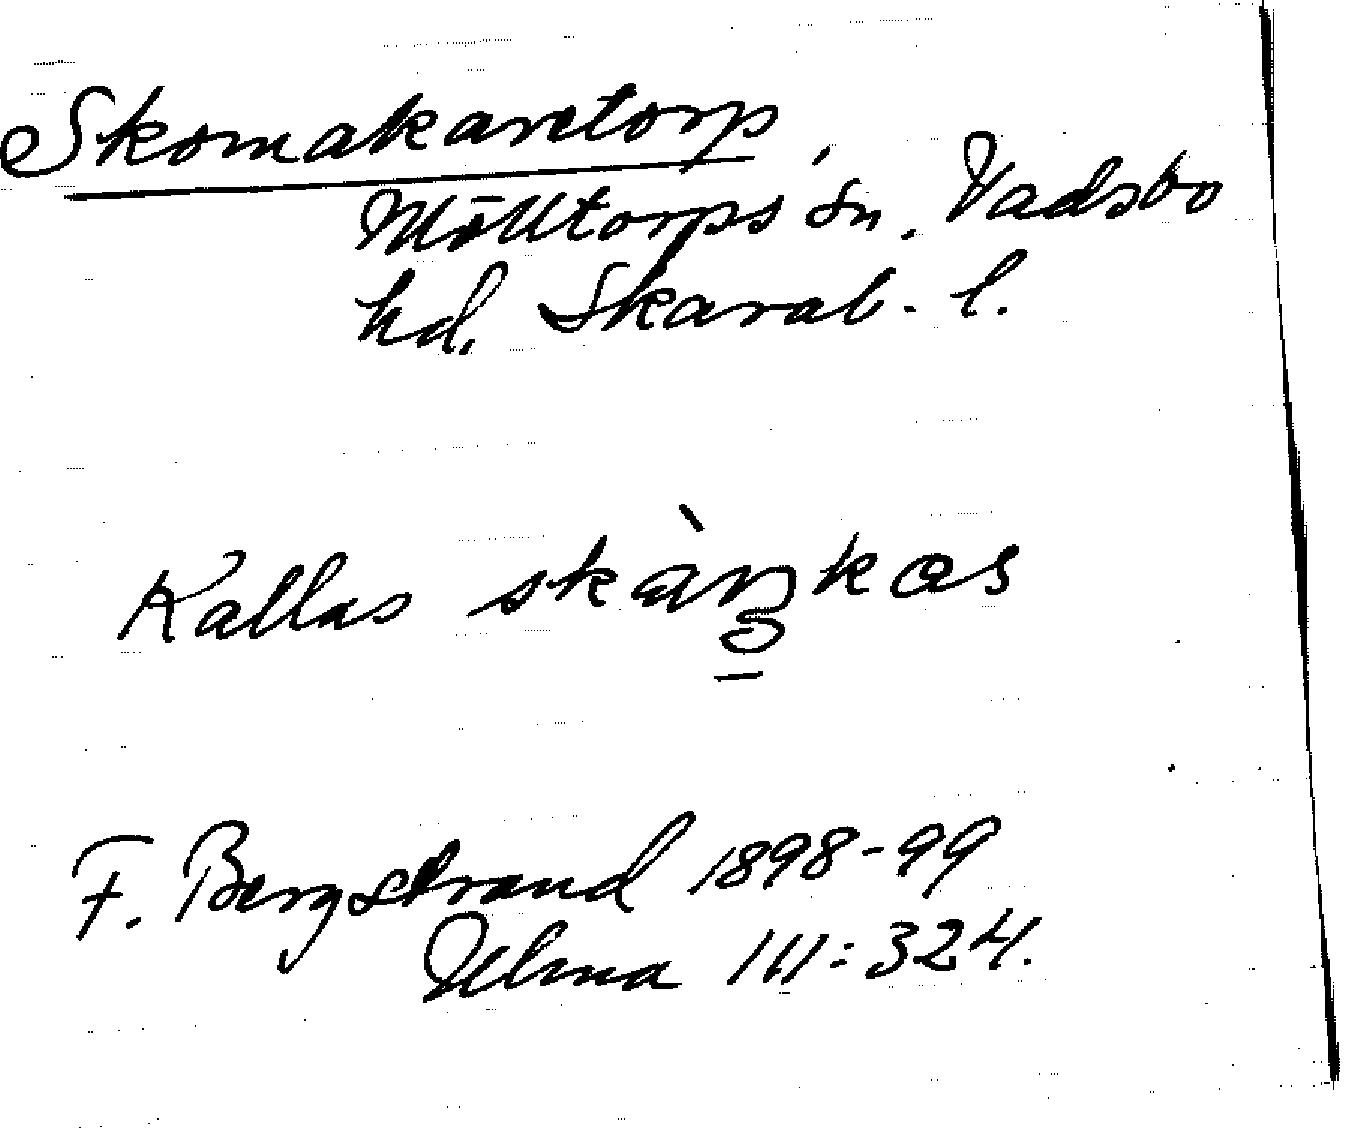 Skomakaretorp,
Mölltorps sn. Vadsbo
hd. Skarab. l.
Kallas
F. Bergstrand 1898-99
Ulma 111:324.